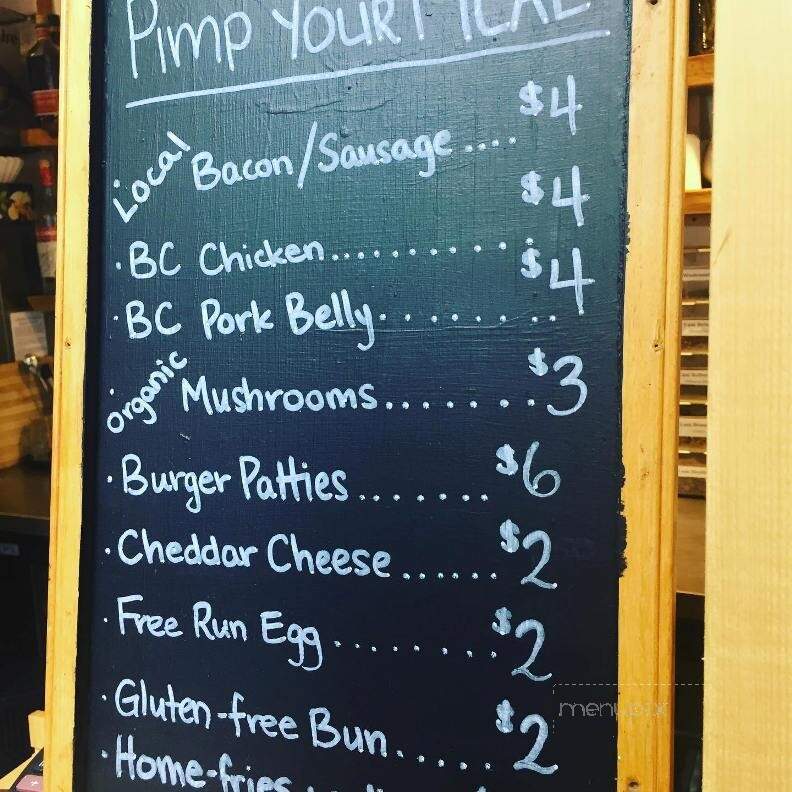 Pimp Your Meal
Local Bacon/Sausage .... $4
· BC Chicken ........... $4
· BC Pork Belly .......... $4
· organic Mushrooms ........ $3
· Burger Patties ........ $6
· Cheddar Cheese ...... $2
· Free Run Egg ........ $2
· Gluten-free Bun ..... $2
· Home-fries
menupix